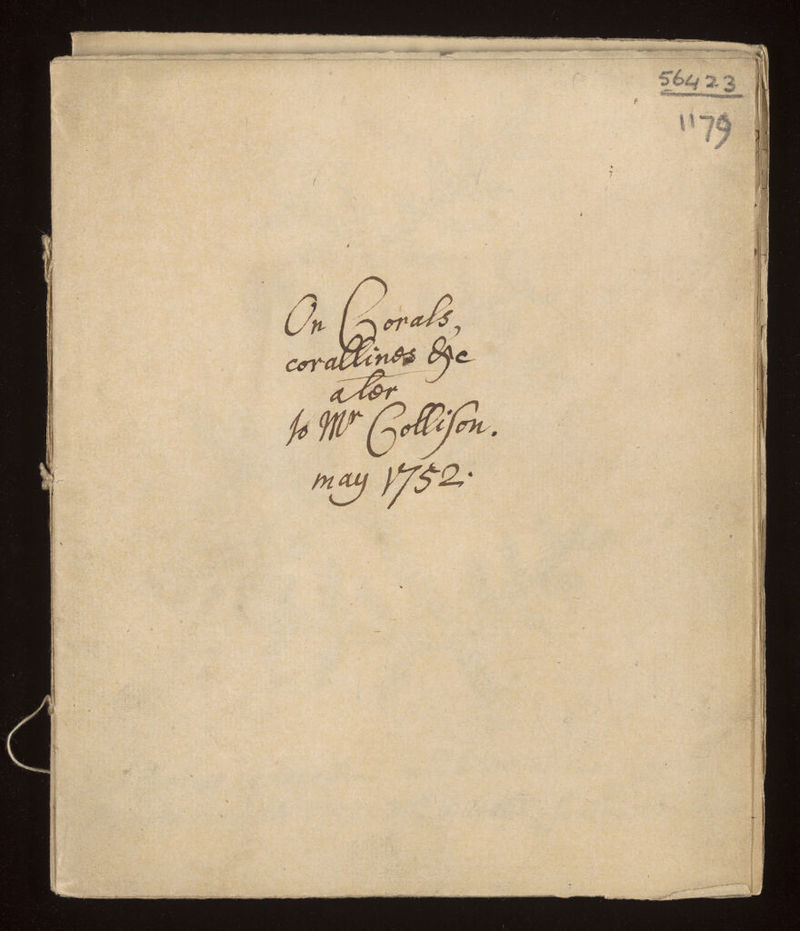 56423
1179
On Corals,
corallines &c
a ler
to Mr Collison.
may 1752.